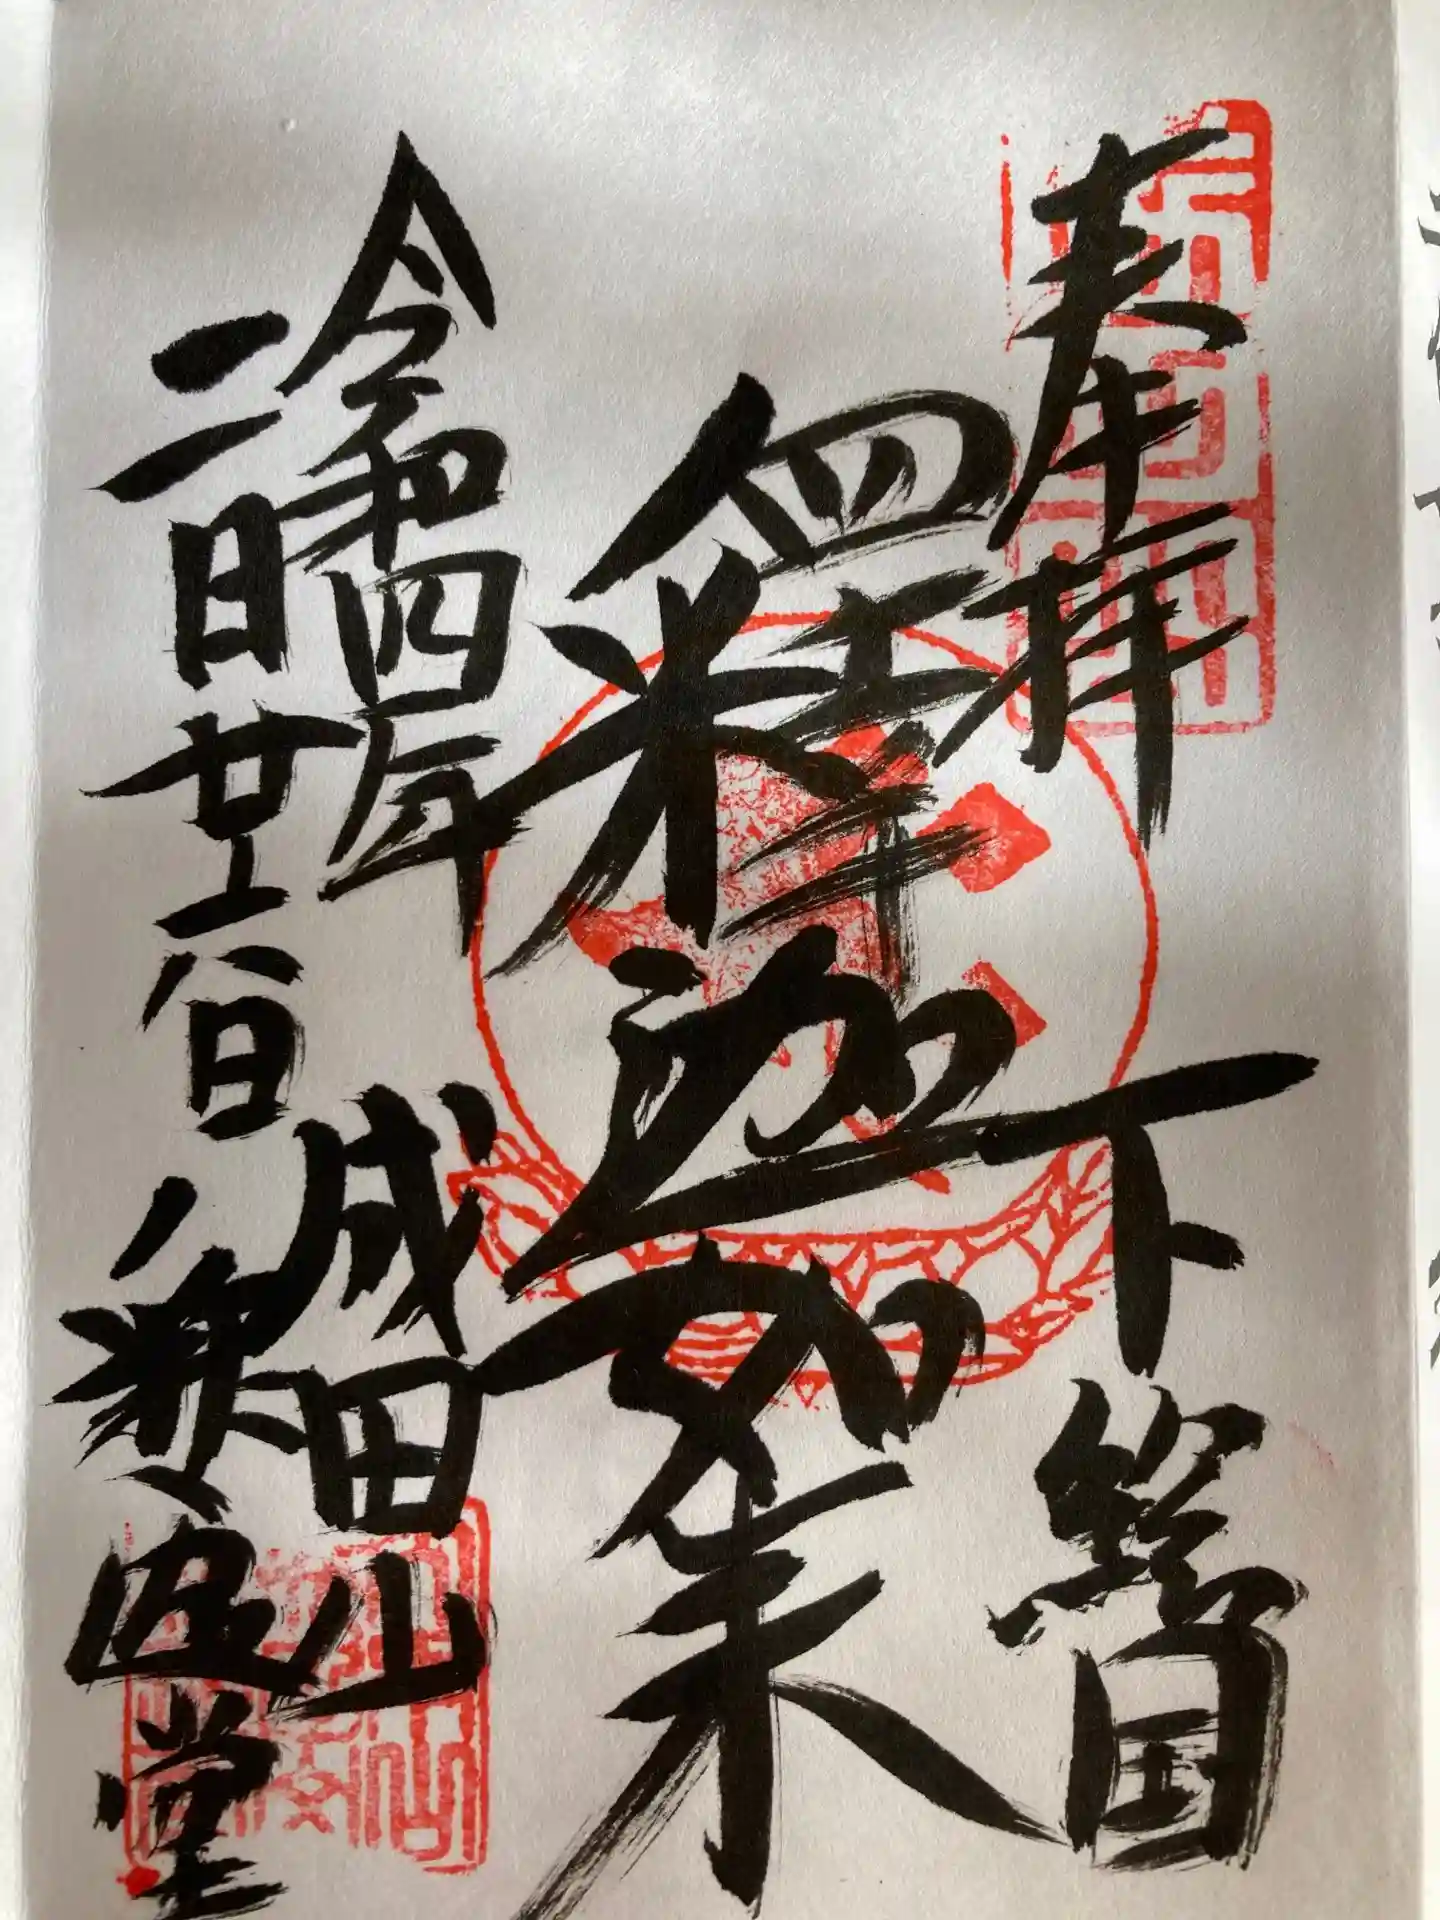 奉拝 下総国
釋迦如来
令和四年
二月廿六日
成田山
釋迦堂